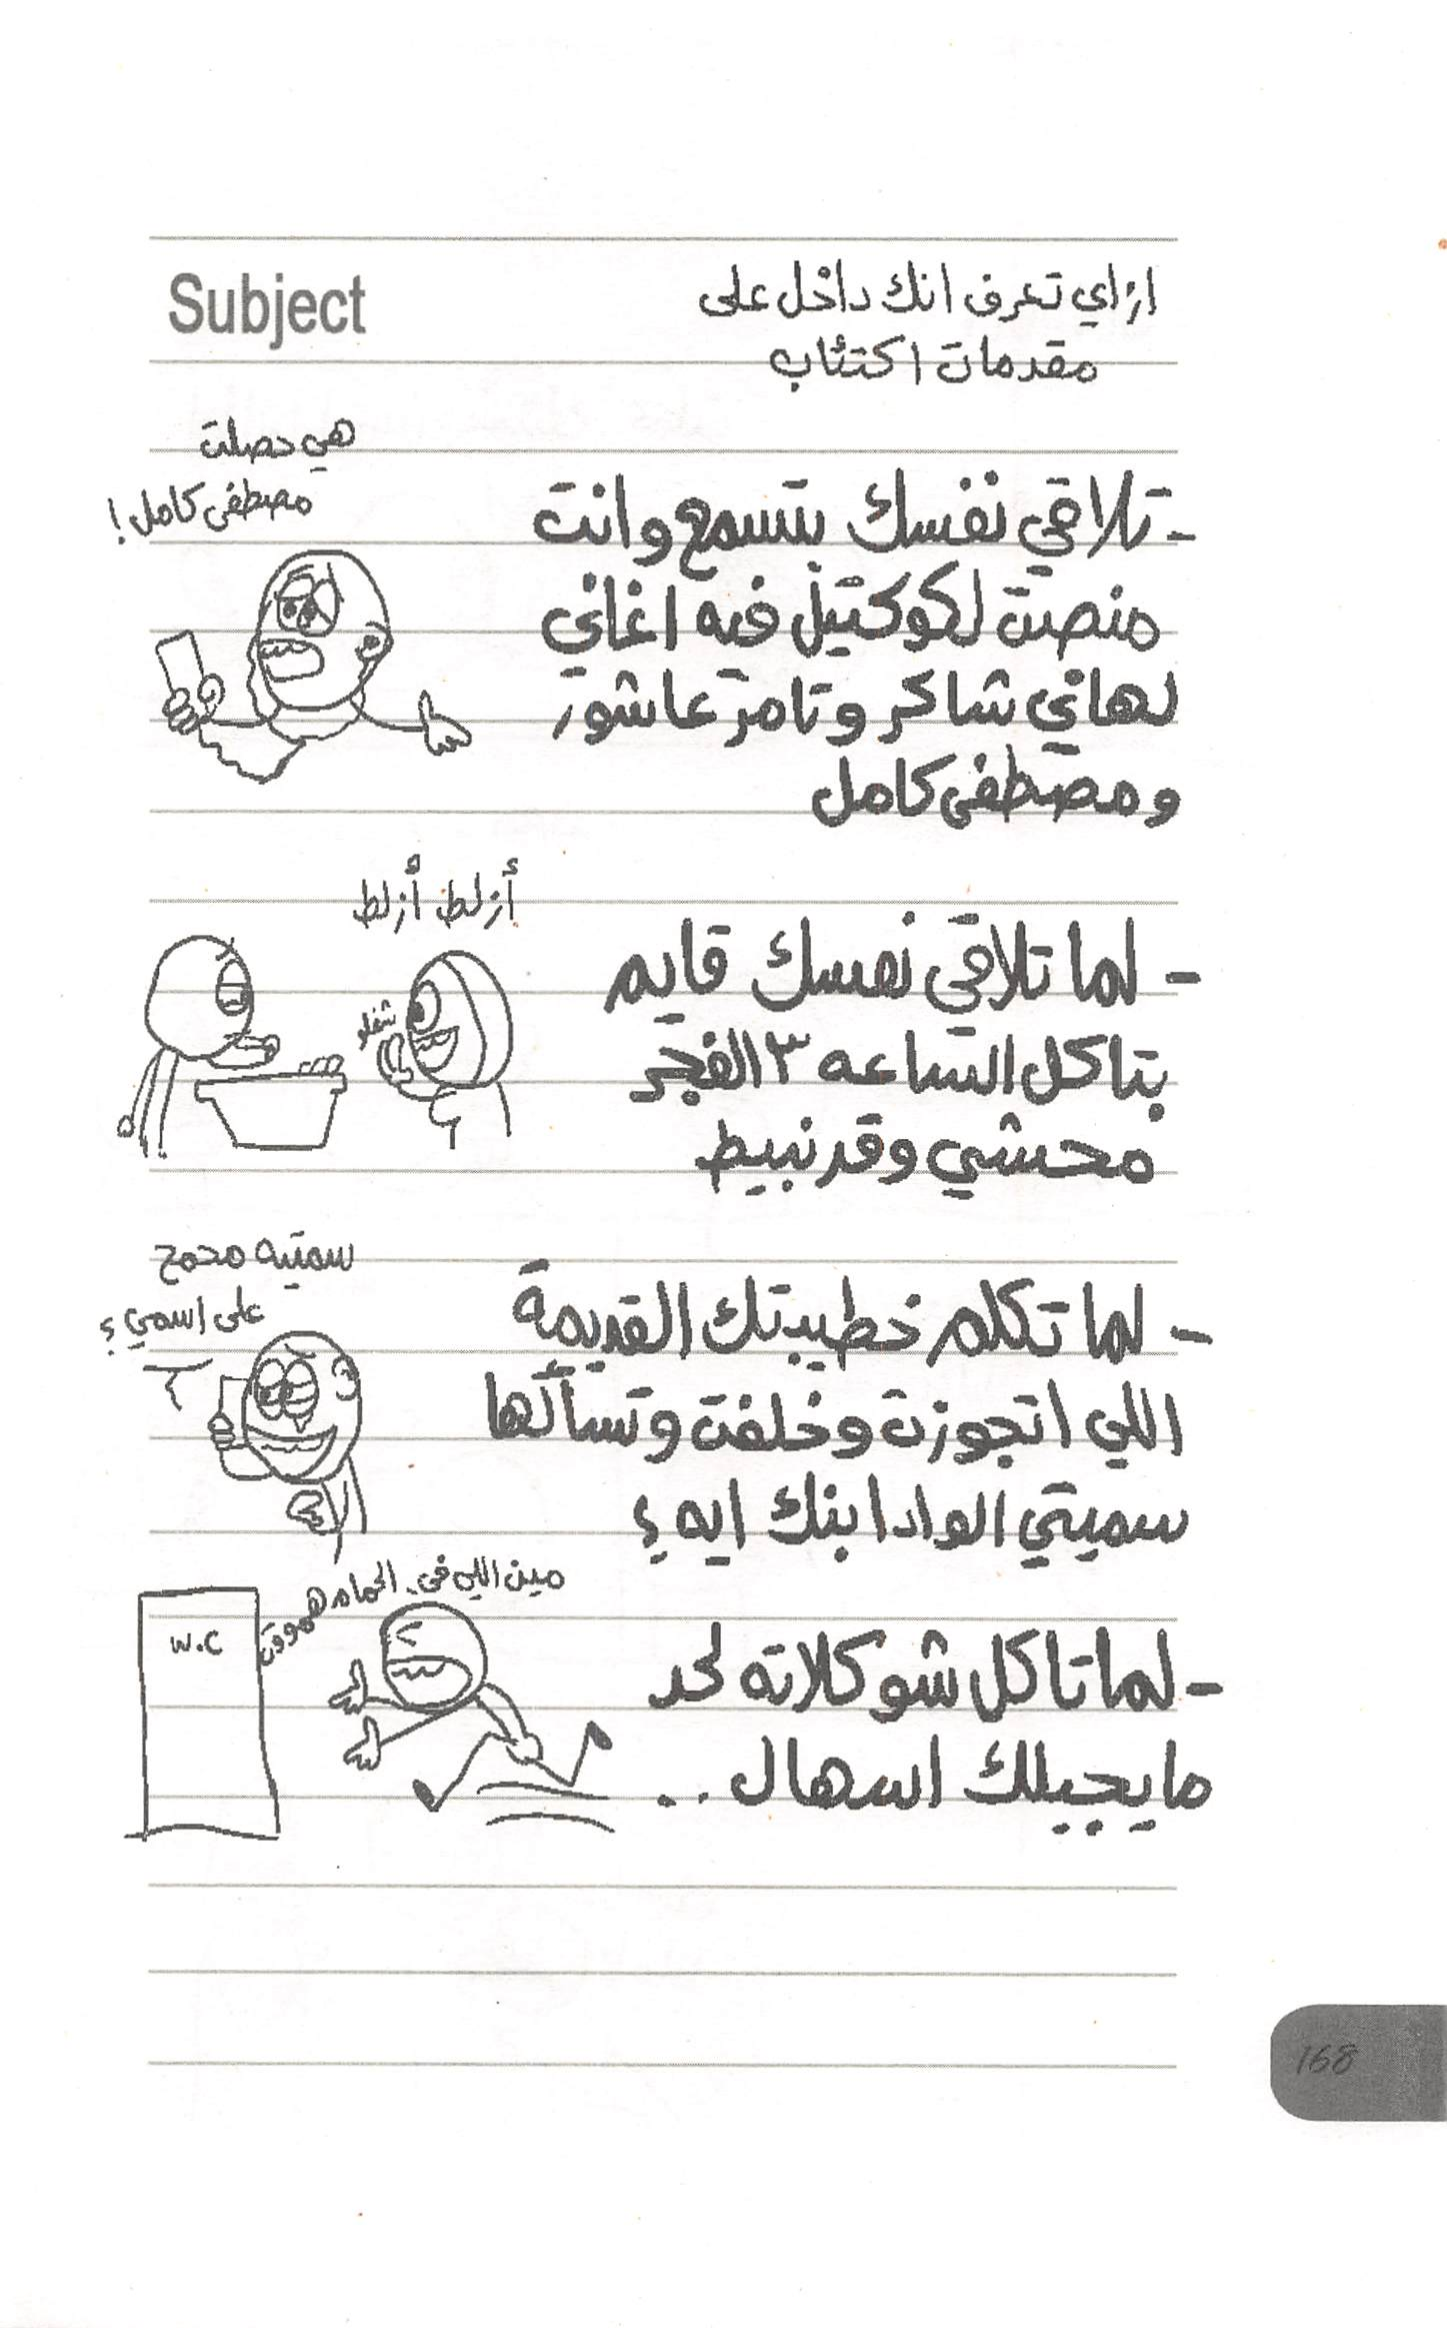 Subject
ازاي تعرف انك داخل على
مقدمات اكتئاب
هي حصلت
مصطفى كامل!
- تلاقي نفسك بتسمع وانت
منصت لكوكتيل فيه اغاني
لهاني شاكر وتامر عاشور
ومصطفى كامل
أزلط أزلط
شفلو
- لما تلاقي نفسك قايم
بتاكل الساعه ٣ الفجر
محشي وقرنبيط
سمتيه محمح
على اسمي؟
- لما تكلم خطيبتك القديمة
اللي اتجوزت وخلفت وتسألها
سميتي الواد ابنك ايه؟
مين اللي في الحمام هموووت
W.C
- لما تاكل شوكلاته لحد
مايجيلك اسهال ..
168